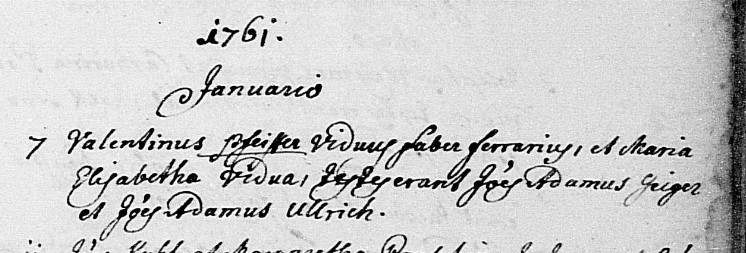 1761.
Januario
7 Valentinus Pfeiffer Viduus faber ferrarius, et Maria
Elisabetha Vidua, Testes erant Jo͞es Adamus Geiger
et Jo͞es Adamus Ullrich.
et Margaretha